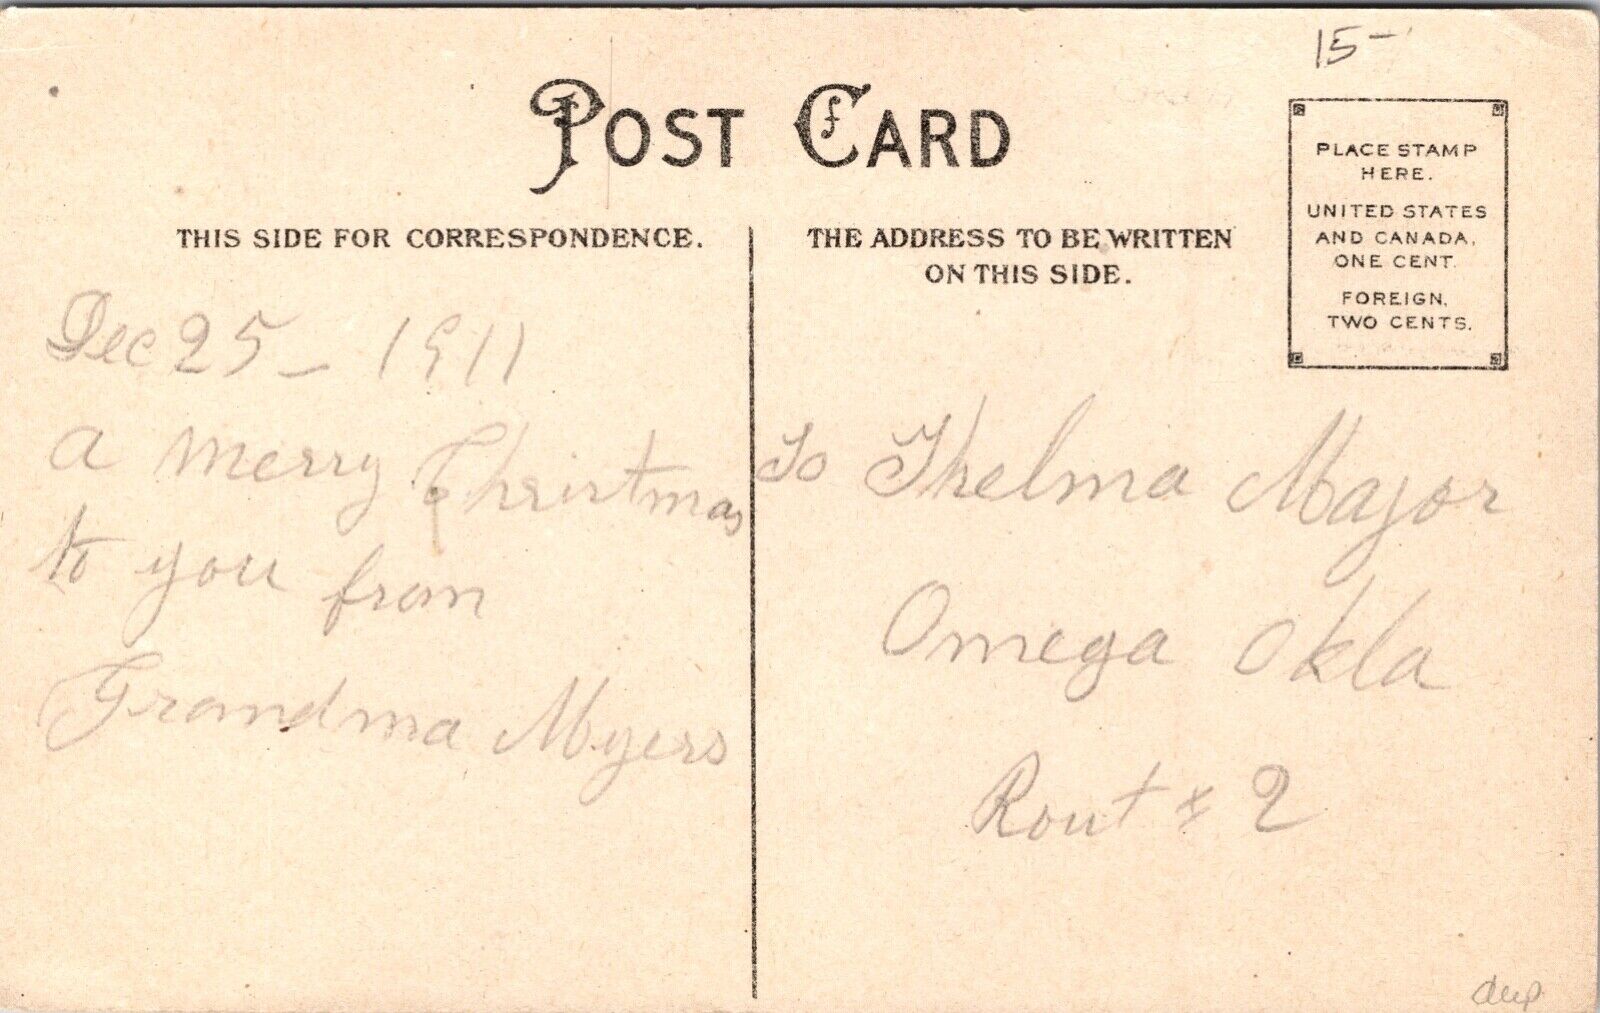 15-
POST CARD
PLACE STAMP
HERE.
UNITED STATES
AND CANADA,
ONE CENT.
FOREIGN,
TWO CENTS.
THIS SIDE FOR CORRESPONDENCE.
THE ADDRESS TO BE WRITTEN
ON THIS SIDE.
Dec 25 - 1911
a merry Christmas
to you from
Grandma Myers
To Thelma Major
Omega Okla
Rout # 2
dup